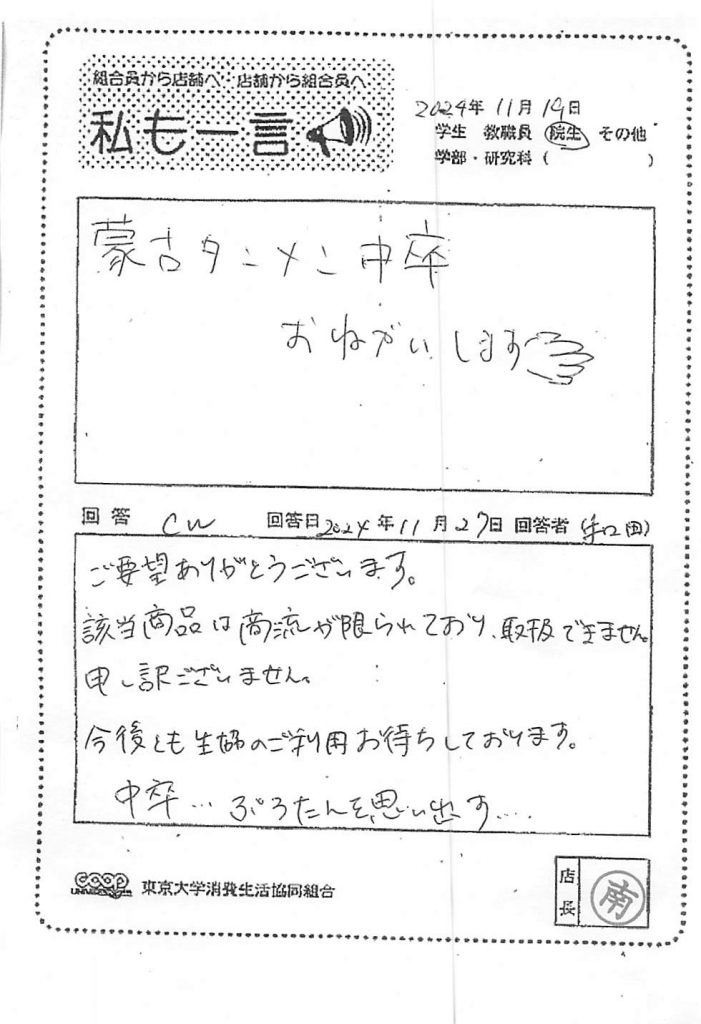 組合員から店舗へ 店舗から組合員へ
私も一言
2024年11月19日
学生 教職員 院生 その他
学部・研究科( )
蒙古タンメン中卒
おねがいします
回答 回答日2024年11月27日 回答者
ご要望ありがとうございます。
該当商品は商流が限られており、取扱できません。
申し訳ございません。
今後とも生協のご利用お待ちしております。
中卒… ぷろたんを思い出す….
coop
東京大学消費生活協同組合
店長
南